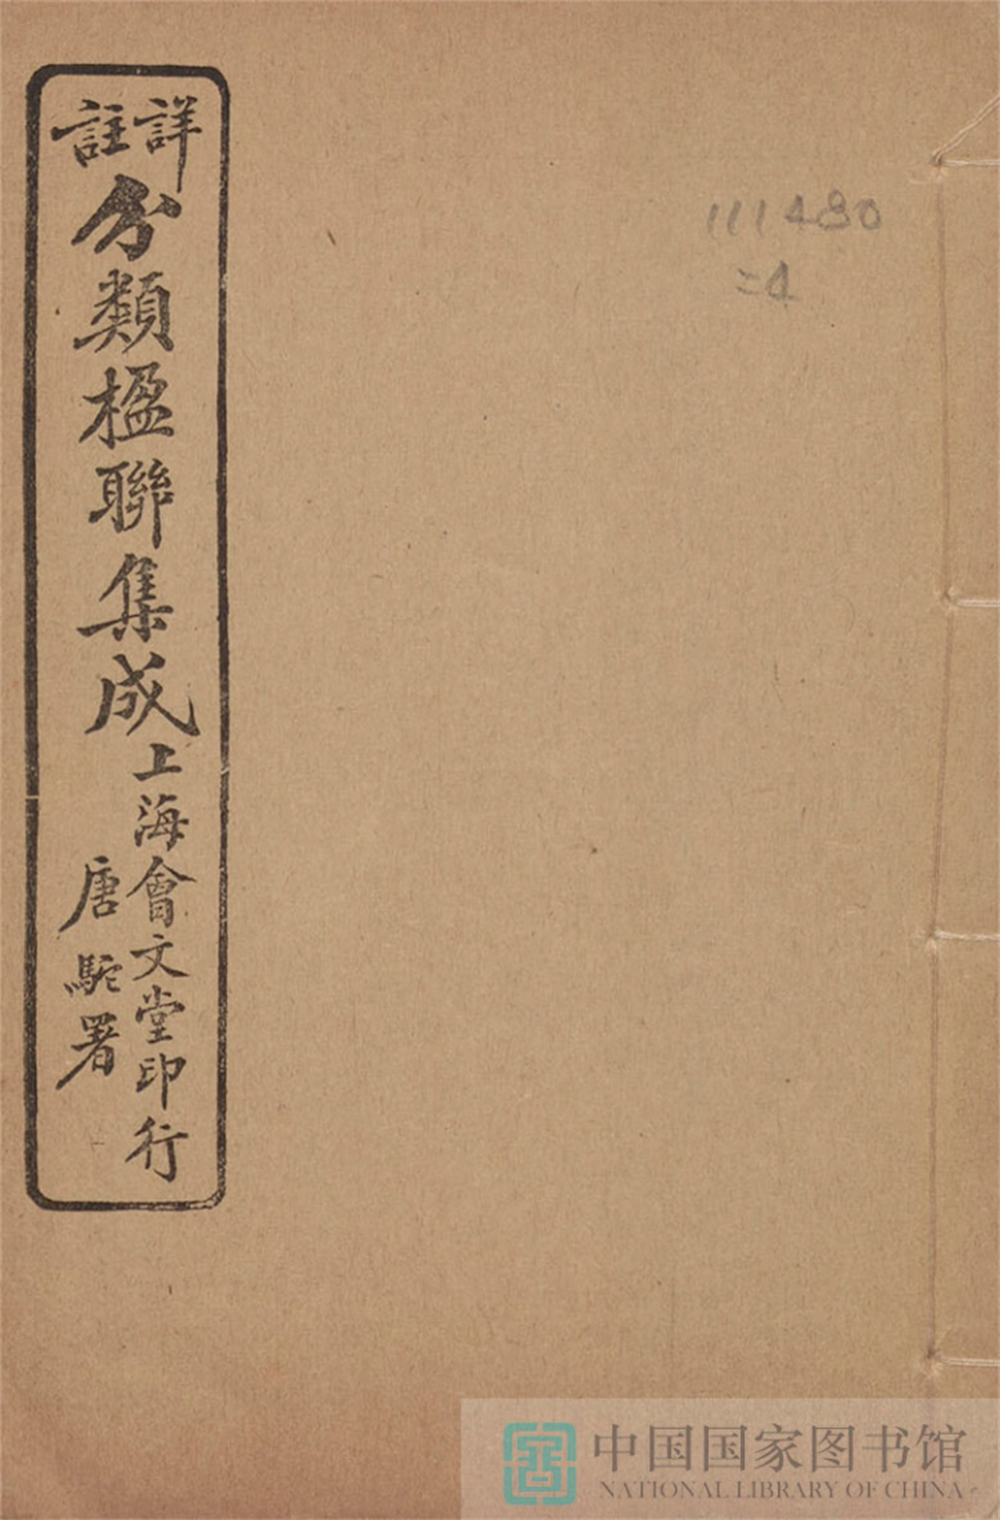 詳註
分類楹聯集成
上海會文堂印行
唐駝署
111480
=4
中国国家图书馆
NATIONAL LIBRARY OF CHINA